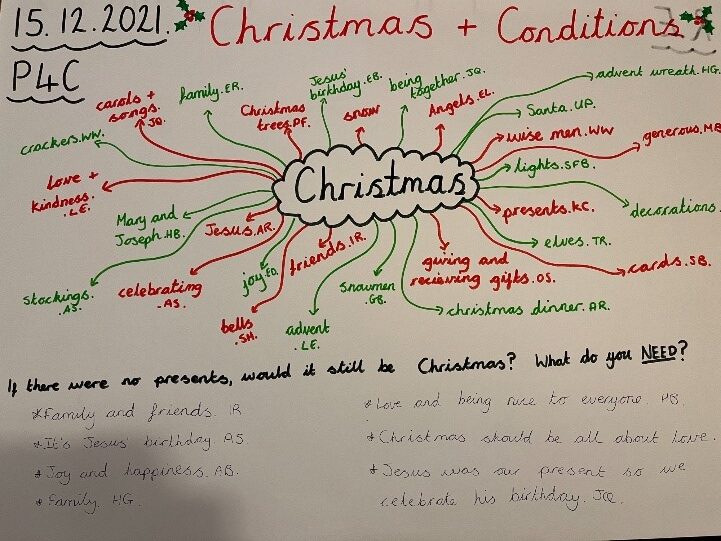 15.12.2021.
Christmas + Conditions
P4C
carols +
songs.
JQ.
family. ER.
Christmas
trees. PF.
Jesus'
birthday. EB.
snow
being
together. JQ.
Angels. EL.
advent wreath. HG.
Santa. UA.
wise men. WW
generous. MB
crackers. WW.
lights. SFB.
Christmas
Love +
kindness.
. LE.
presents. KC.
decorations.
Mary and
Joseph. HB.
Jesus. AR.
friends. IR.
elves. TR.
joy. EO.
giving and
recieving gifts. OS.
cards. SB.
Stockings.
. AS.
celebrating
. AS.
Snowmen
. GB.
christmas dinner. AR.
bells
. SH.
advent
. LE.
If there were no presents, would it still be Christmas? What do you NEED?
*Family and friends. IR
*It's Jesus' birthday. AS.
*Joy and happiness. AB.
*Family. HG.
*Love and being nice to everyone. HB.
*Christmas should be all about love.
*Jesus was our present so we
celebrate his birthday. JQ.